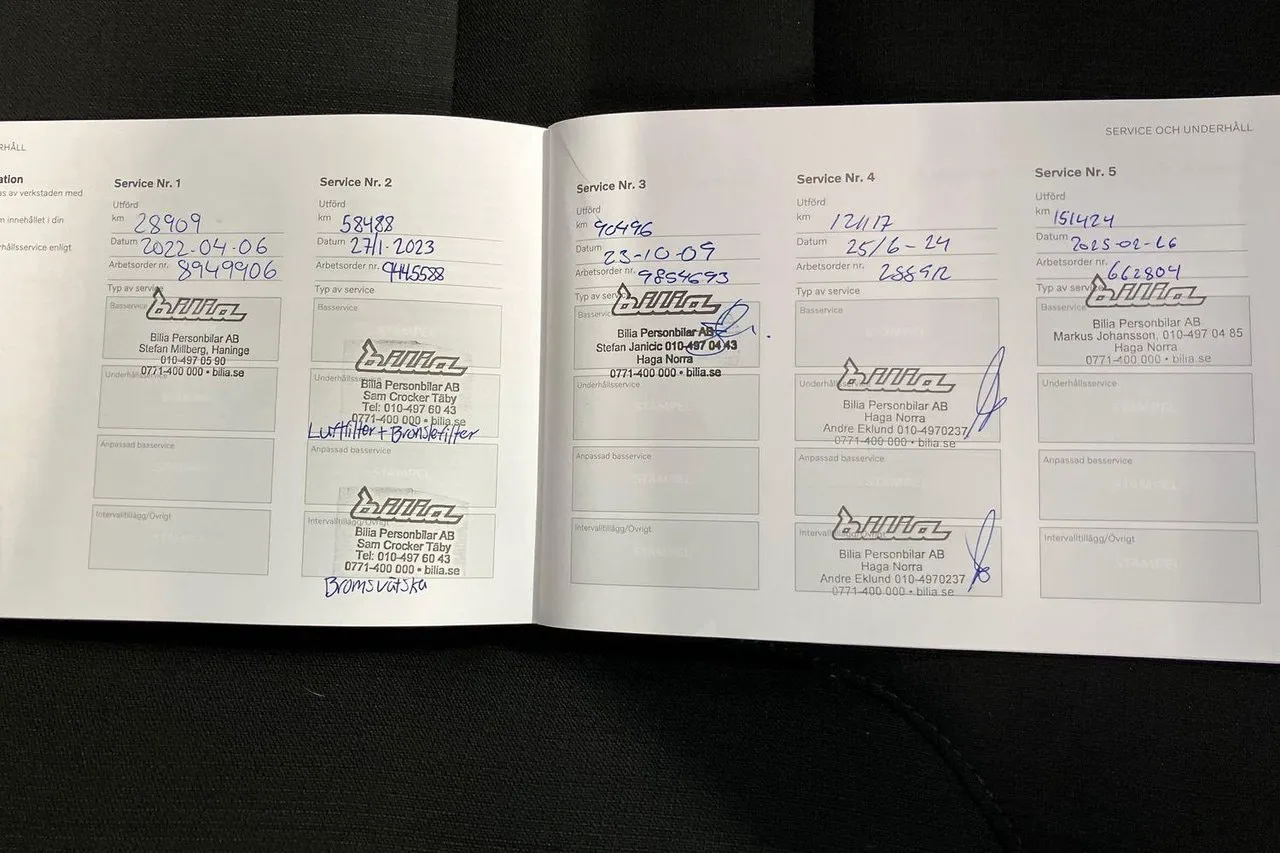 RHÅLL
ation
as av verkstaden med
m innehållet i din
rhållsservice enligt
Service Nr. 1
Utförd
km 28909
Datum 2022-04-06
Arbetsorder nr. 8949906
Typ av service
Basservice
bilia
Bilia Personbilar AB
Stefan Millberg, Haninge
010-497 05 90
0771-400 000 • bilia.se
Underhållsservice
Anpassad basservice
Intervalltillägg/Övrigt
Service Nr. 2
Utförd
km 58488
Datum 27/1-2023
Arbetsorder nr. 9445588
Typ av service
Basservice
bilia
Underhållsservice
Bilia Personbilar AB
Sam Crocker Täby
Tel: 010-497 60 43
0771-400 000 • bilia.se
Luftfilter + Bränslefilter
Anpassad basservice
bilia
Intervalltillägg/Övrigt
Bilia Personbilar AB
Sam Crocker Täby
Tel: 010-497 60 43
0771-400 000 • bilia.se
Bromsvätska
SERVICE OCH UNDERHÅLL
Service Nr. 3
Utförd
km 90496
Datum 23-10-09
Arbetsorder nr. 9854693
Typ av service
bilia
Basservice
Bilia Personbilar AB
Stefan Janicic 010-497 04 43
Haga Norra
0771-400 000 • bilia.se
Underhållsservice
Anpassad basservice
Intervalltillägg/Övrigt
Service Nr. 4
Utförd
km 121117
Datum 25/6-24
Arbetsorder nr.
Typ av service
Basservice
bilia
Underhållsservice
Bilia Personbilar AB
Haga Norra
Andre Eklund 010-4970237
0771-400 000 • bilia.se
Anpassad basservice
bilia
Intervalltillägg/Övrigt
Bilia Personbilar AB
Haga Norra
Andre Eklund 010-4970237
0771-400 000 • bilia.se
Service Nr. 5
Utförd
km 151424
Datum 2025-02-26
Arbetsorder nr. 662804
Typ av service
bilia
Basservice
Bilia Personbilar AB
Markus Johansson, 010-497 04 85
Haga Norra
0771-400 000 • bilia.se
Underhållsservice
Anpassad basservice
Intervalltillägg/Övrigt